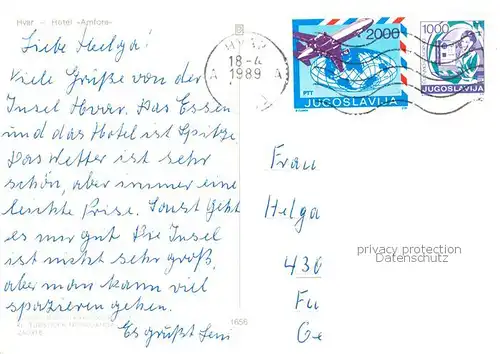 Hvar - Hotel »Amfora«
Liebe Helga!
Viele Grüße von der
Insel Hvar. Das Essen
und das Hotel ist Spitze
Das Wetter ist sehr
schön, aber immer eine
leichte Prise. Sonst geht
es mir gut Die Insel
ist nicht sehr groß,
aber man kann viel
spazieren gehen.
Es grüßt
1656
HVAR
18-4
1989
A A
2000
PTT
JUGOSLAVIJA
1000
JUGOSLAVIJA
Frau
Helga
430
Fu
Ge
privacy protection
Datenschutz